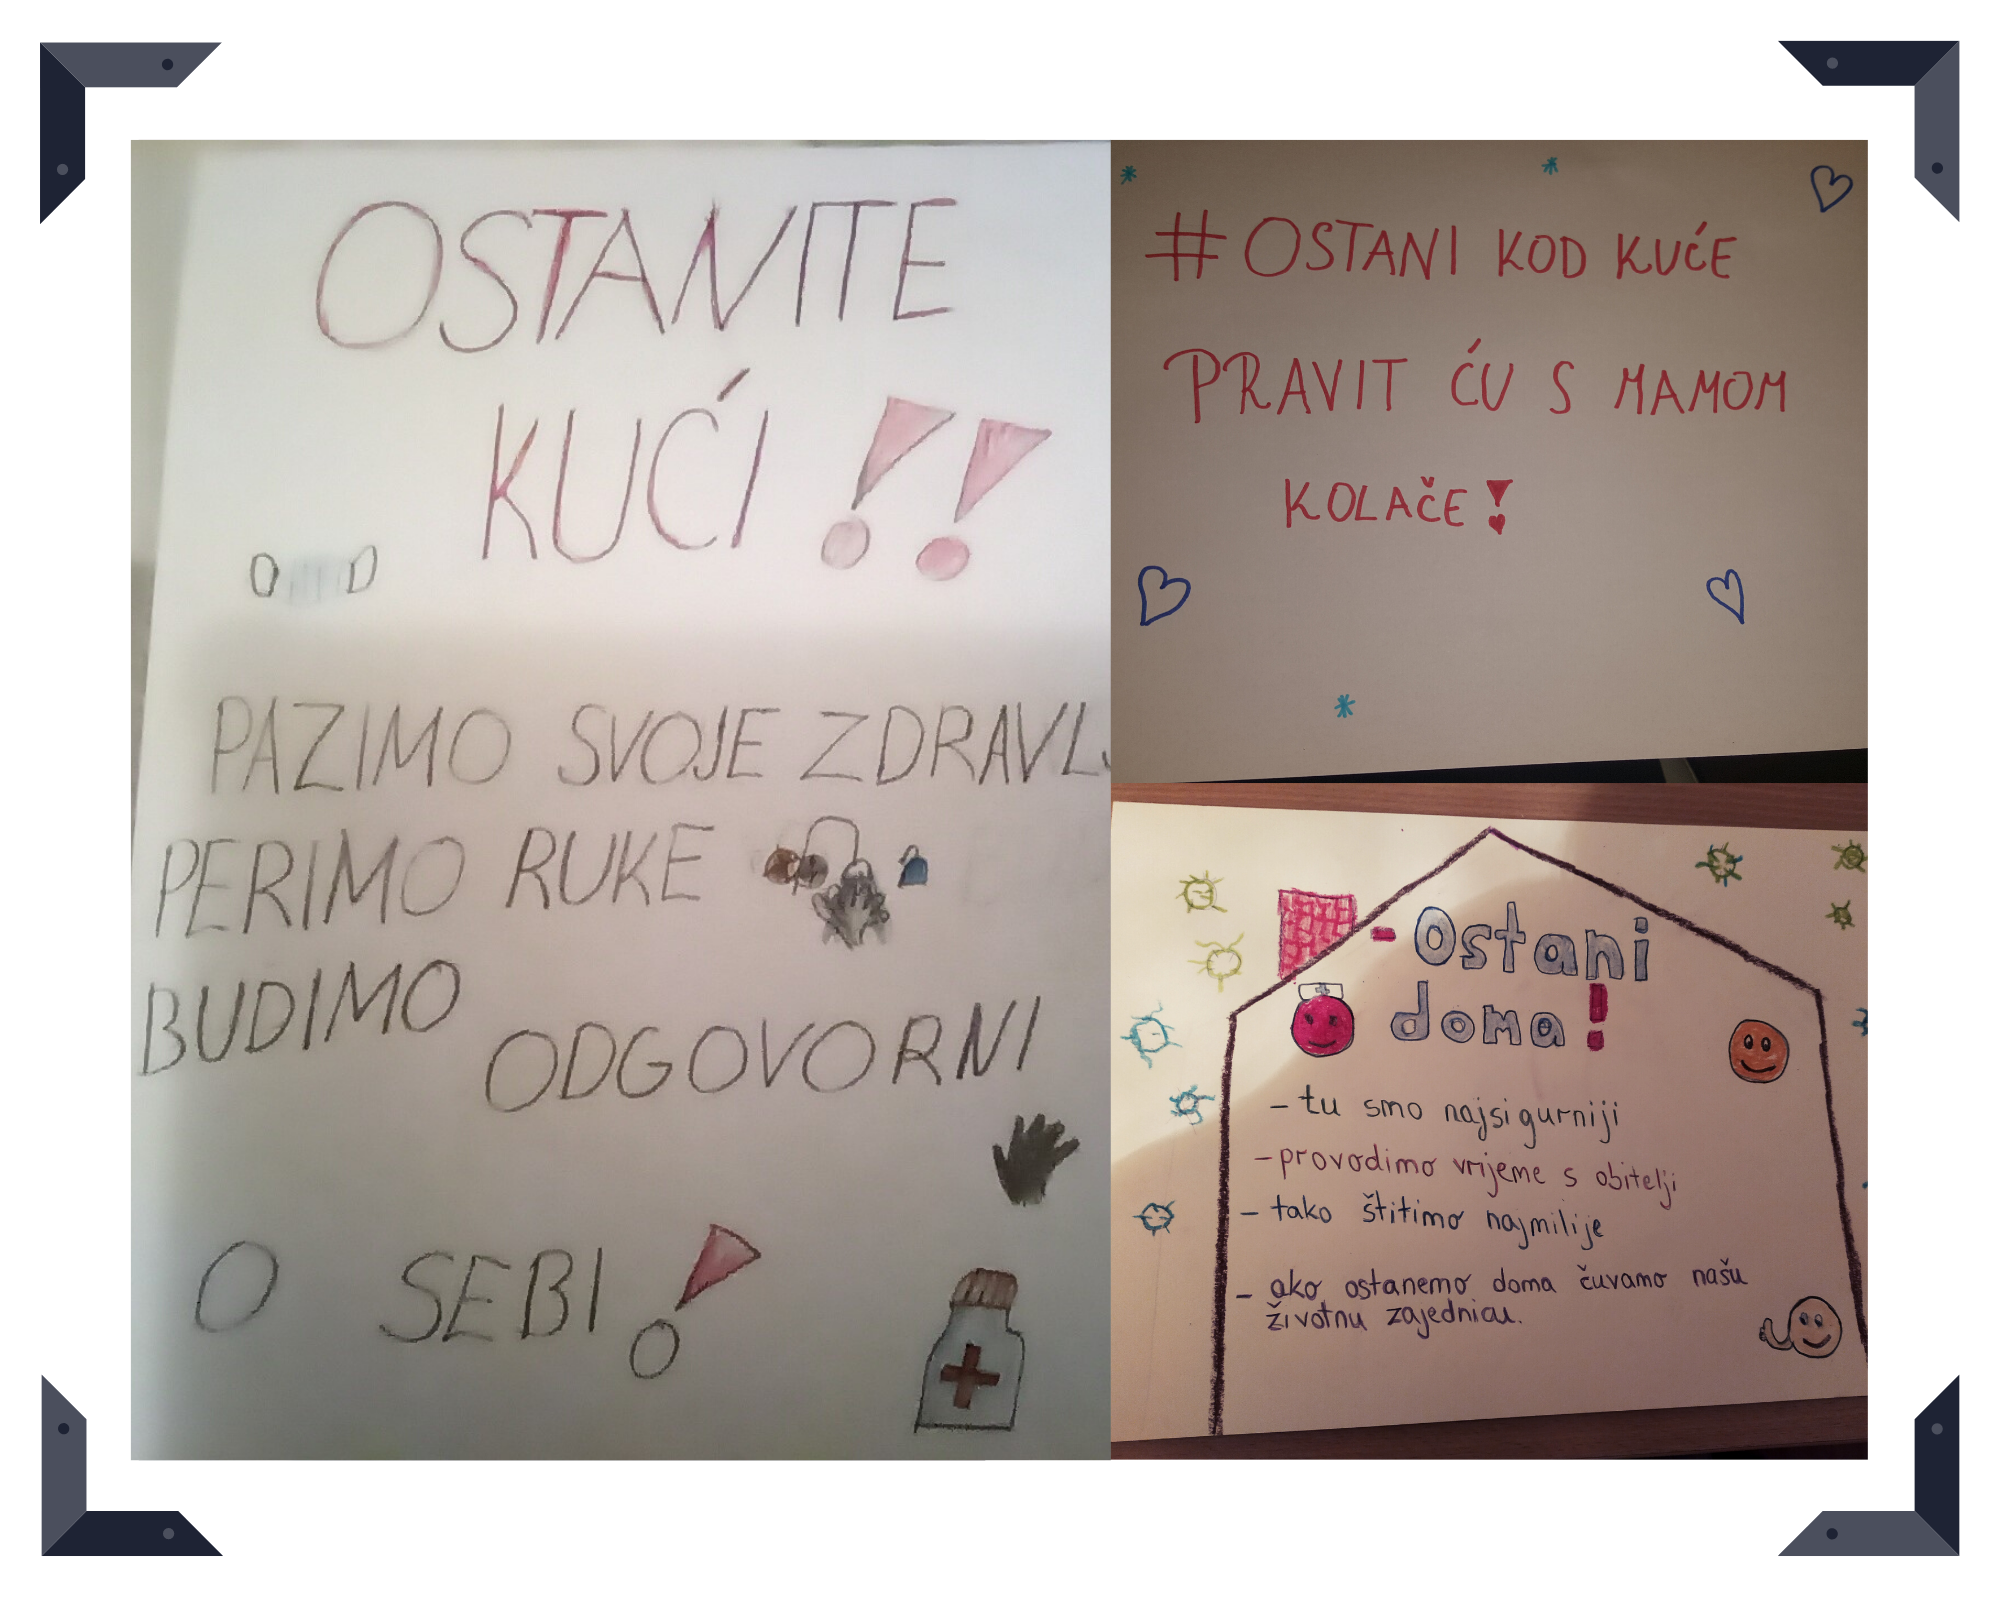 OSTANITE
KUĆI!!
PAZIMO SVOJE ZDRAVLJ
PERIMO RUKE
BUDIMO ODGOVORNI
O SEBI!
#OSTANI KOD KUĆE
PRAVIT ĆU S MAMOM
KOLAČE!
-Ostani
doma!
- tu smo najsigurniji
- provodimo vrijeme s obitelji
- tako štitimo najmilije
- ako ostanemo doma čuvamo našu
životnu zajednicu.